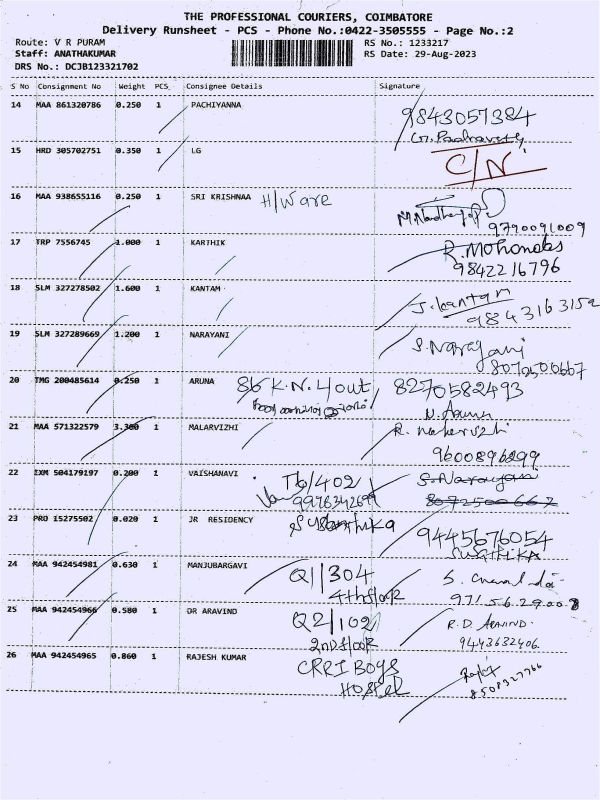 THE PROFESSIONAL COURIERS, COIMBATORE
Delivery Runsheet - PCS - Phone No.:0422-3505555 - Page No.:2
Route: V R PURAM RS No.: 1233217
Staff: ANATHAKUMAR RS Date: 29-Aug-2023
DRS No.: DCJB123321702
S No Consignment No Weight PCS Consignee Details Signature
14 MAA 861320786 0.250 1 PACHIYANNA 9843057384
15 HRD 305702751 0.350 1 LG C/N
16 MAA 938655116 0.250 1 SRI KRISHNAA H/Ware
9790091009
17 TRP 7556745 1.000 1 KARTHIK R. Mohondas
9842216796
18 SLM 327278502 1.600 1 KANTAM J. kantam
9843163152
19 SLM 327289669 1.200 1 NARAYANI S. Narayani
8072500667
20 TMG 200485614 0.250 1 ARUNA 86 K.N. 4 out 8270582493
21 MAA 571322579 3.300 1 MALARVIZHI
9600896299
22 IXM 504179197 0.200 1 VAISHANAVI Tb/402 S. Narayani
8072500667
23 PRO 15275502 0.020 1 JR RESIDENCY 9445676054
24 MAA 942454981 0.630 1 MANJUBARGAVI Q1/304
4th floor
25 MAA 942454966 0.580 1 DR ARAVIND Q2/102 R.D. ARAVIND.
2nd floor 9443632406.
26 MAA 942454965 0.860 1 RAJESH KUMAR CRRI BOYS
HOSTEL